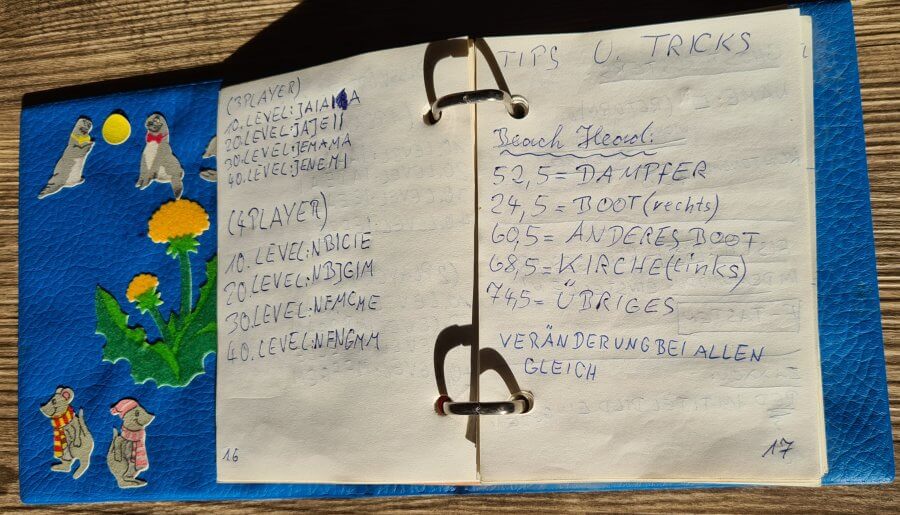 (3PLAYER)
10.LEVEL:JAIAMA
20.LEVEL:JAJEII
30.LEVEL:JEMAMA
40.LEVEL:JENEMI
(4PLAYER)
10.LEVEL:NBICIE
20.LEVEL:NBJGIM
30.LEVEL:NFMCME
40.LEVEL:NFNGMM
16
TIPS U. TRICKS
Beach Head:
52,5=DAMPFER
24,5=BOOT(rechts)
60,5=ANDERES BOOT
68,5=KIRCHE(links)
74,5=ÜBRIGES
VERÄNDERUNG BEI ALLEN
GLEICH
17